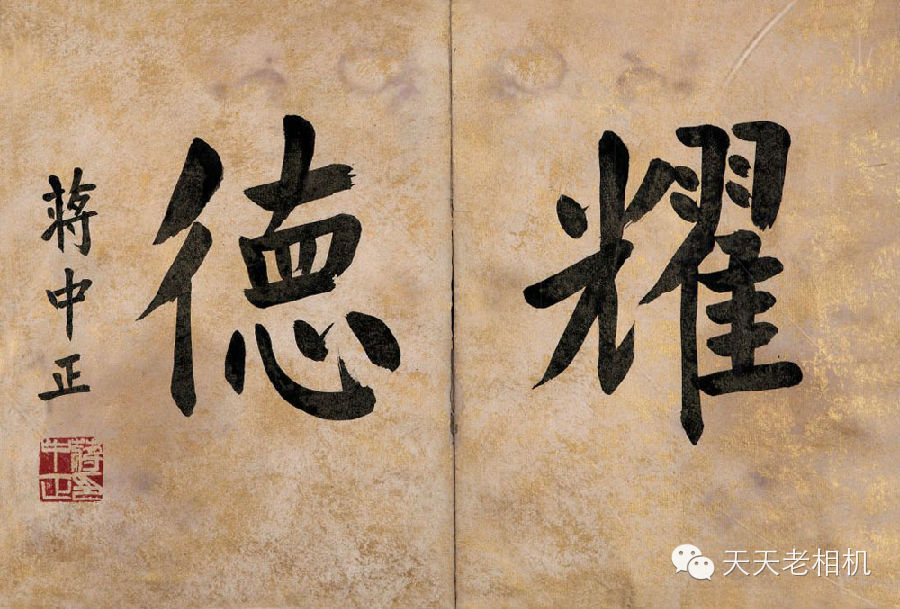 耀德
蔣中正
蔣中正
天天老相机